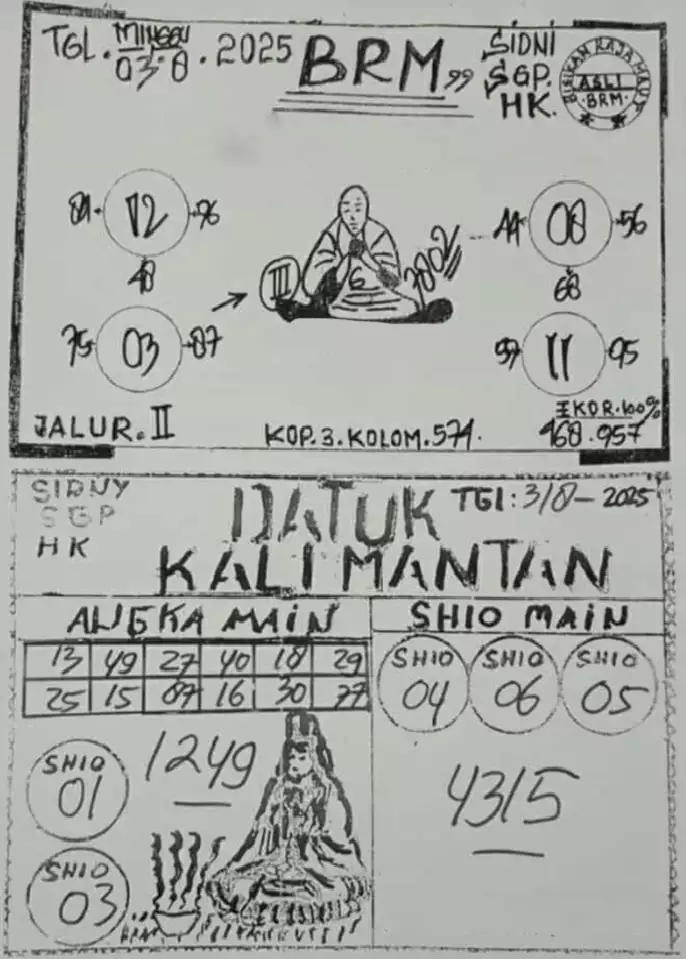 TGL. MINGGU 03.8.2025
BRM 99
SIDNI
SGP.
HK.
BISIKAN RAJA MAUT
ASLI
BRM
12
76
48
03
87
75
III
6
44
08
56
68
11
95
JALUR. II
KOP. 3. KOLOM. 574.
EKOR. 100%
468. 957
SIDNY
SGP
HK
DATUK
KALIMANTAN
TGl: 3/8 - 2025
ANGKA MAiN
SHIO MAiN
13 49 27 40 18 29
25 15 87 16 30 77
SHIO 04
SHIO 06
SHIO 05
SHIO 01
1249
4315
SHIO 03